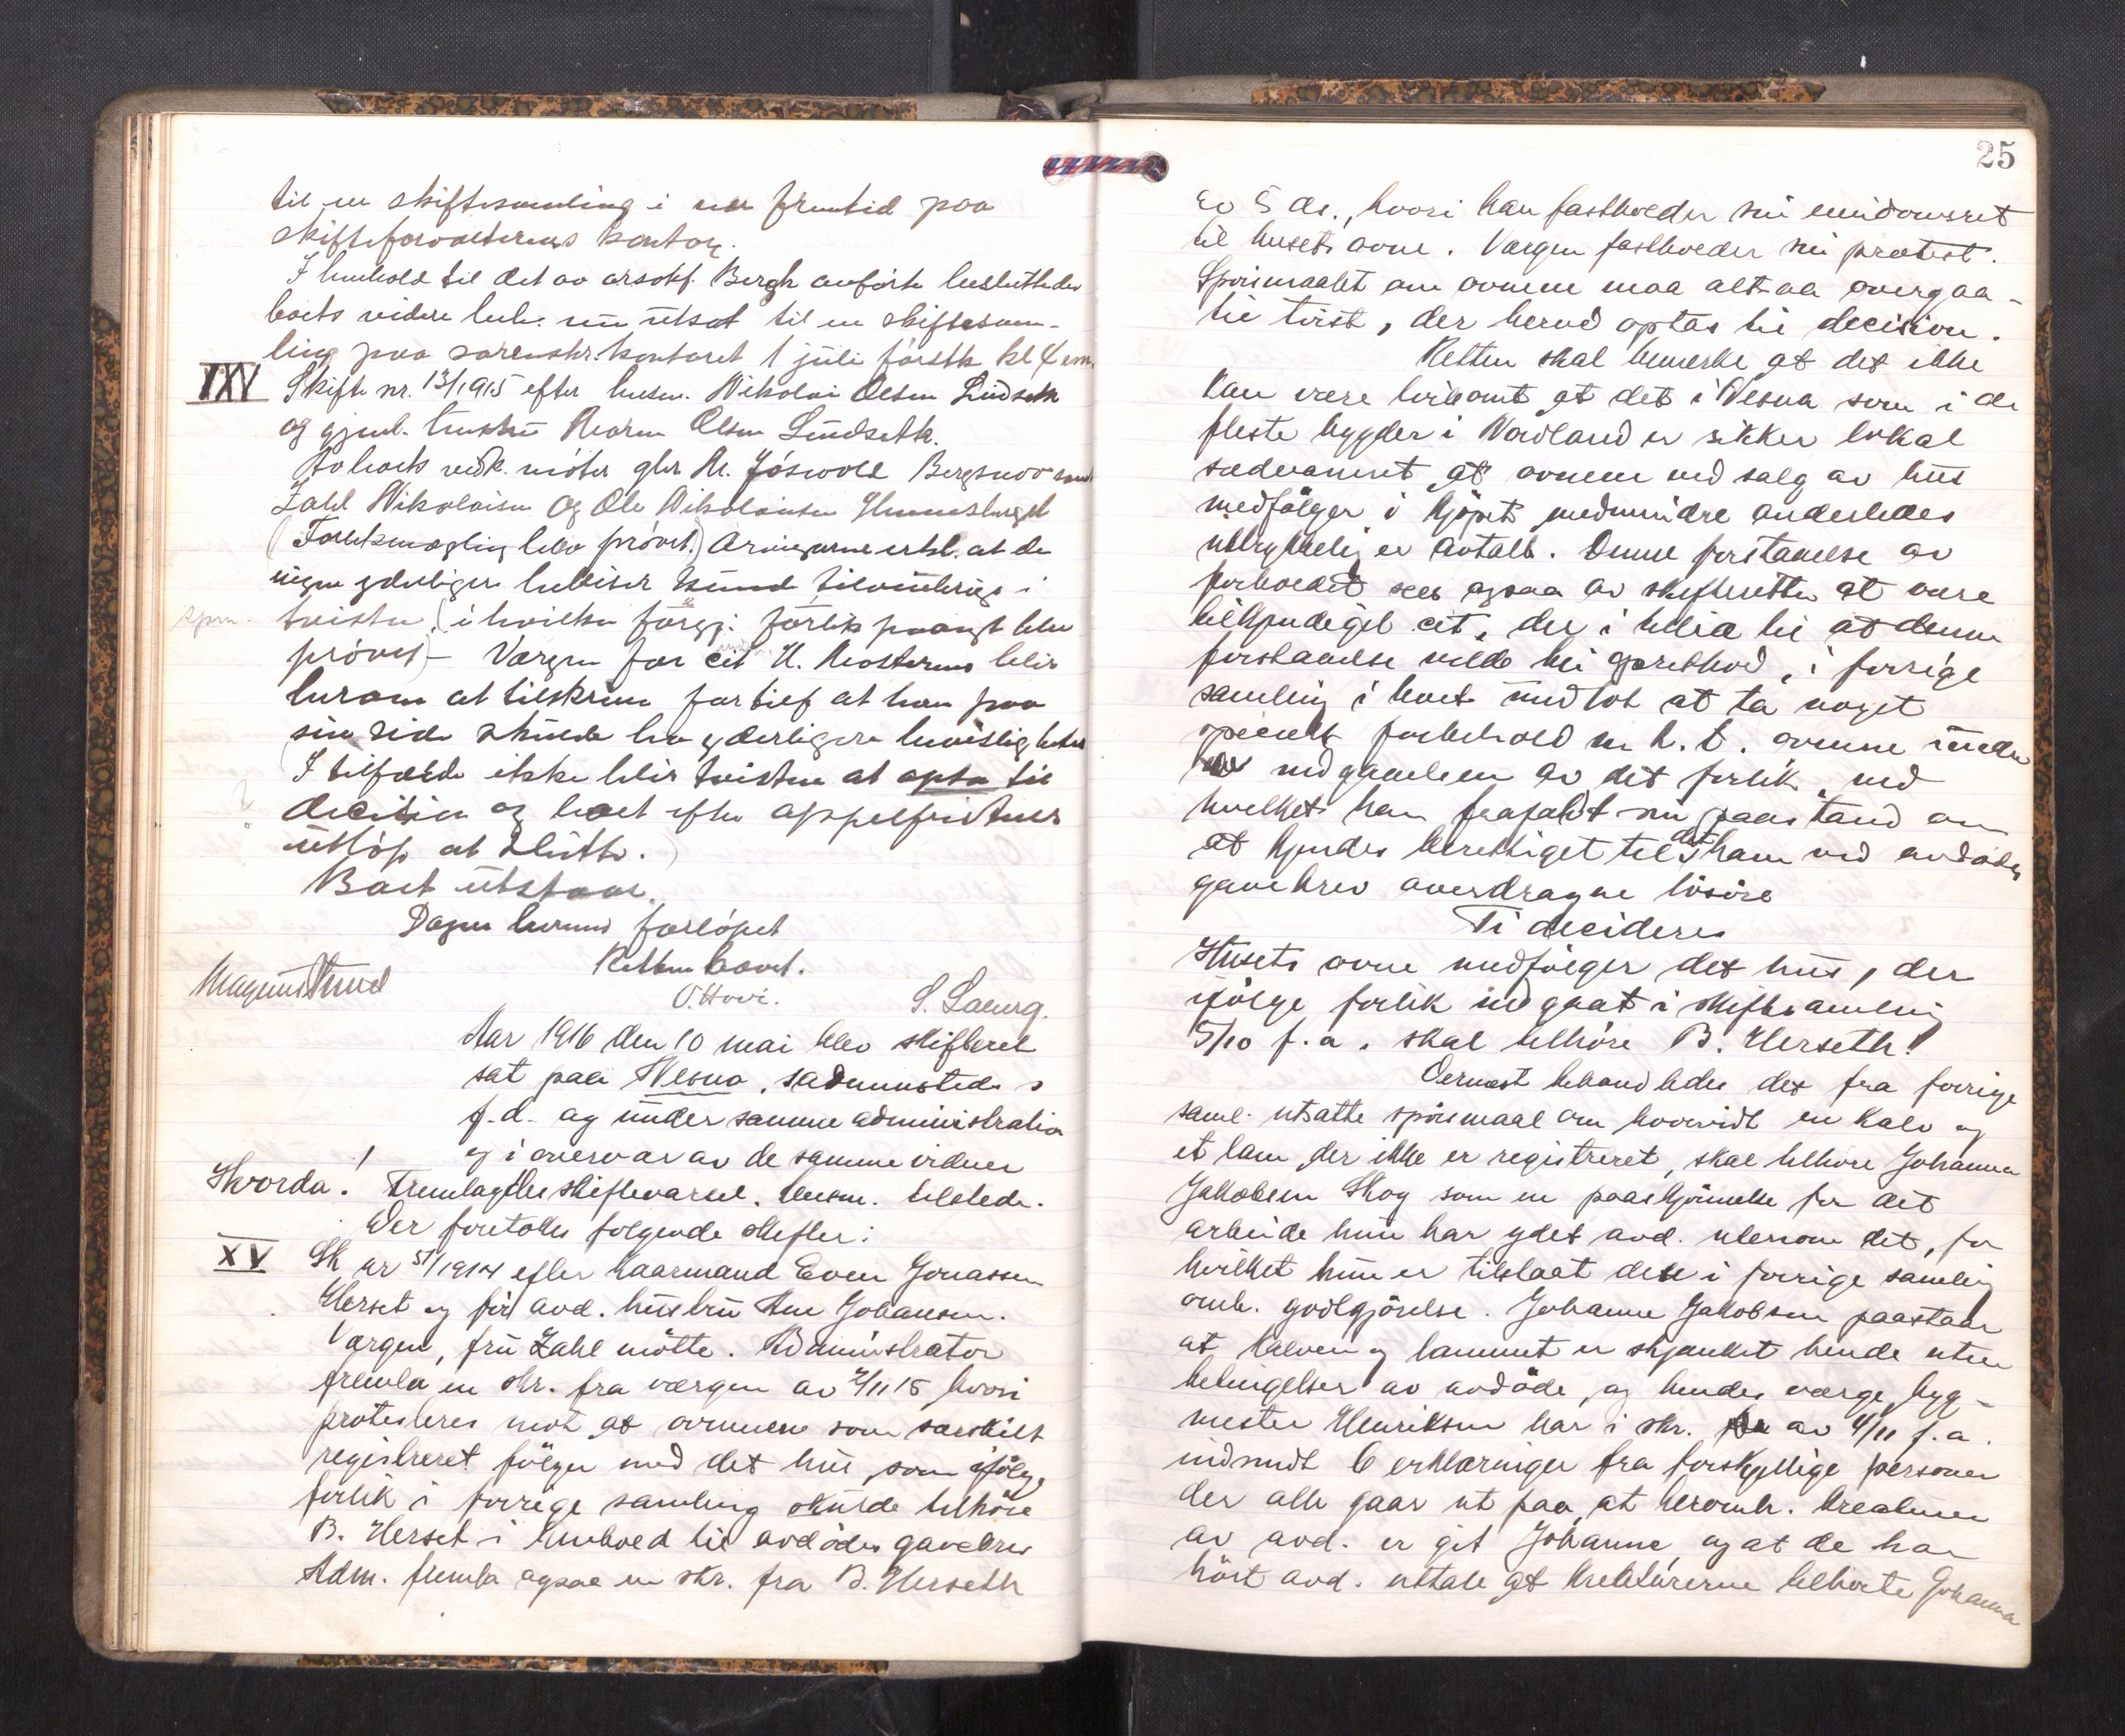 til en skiftesamling i nær fremtid paa
skifteforvalterens kontor.
I henhold til det av orsokf. Bergh anførte besluttedes
boets videre beh. utsat til en skiftesam-
ling paa sorenskr. kontoret 1 juli førstk kl 4 em.
XXV Skifte nr. 13/1915 efter husm. Nikolai Olsen Lindseth
og gjenl. hustru Maren Olsen Lindseth.
Av boets vedk. møter gbr M. Jøsvoll Bergsnov samt
Zahl Nikolaisen og Ole Nikolaisen
(Forliksmægling blev prøvet.) Arvingerne erkl. at de
ingen yderligere beviser kund tilveiebringe i
tvisten, (i hvilken forgj. forlik paanyt blev
spm.
prøvet) – Værgen for cit H. Mosterens blir
herom at tilskrive for tilf at han paa
sin side skulde ha yderligere bevisligheter
I tilfælde ikke blir tvisten at opta til
decision og boet efter appelfristens
utløp at slutte.
Boet utstaar.
Dagen herund forløpet
Retten hævet.
Magnus Lund O. Hovi. S. Laurg.
Aar 1916 den 10 mai blev skifteret
sat paa Nesna, sædvanstedes
f.d. og under samme administration
og i overvær av de samme vidner
Hvorda! Fremlagdes skiftevarsel. Lensm. tilstede.
Der foretokes følgende skifter:
XV Sk nr 51/1914 efter kaarmand Even Jonassen
Herset og før avd. hustru Ane Johansen.
Værgen, fru Zahl møtte. Administrator
fremla en skr. fra værgen av 2/11 15 hvori
protesteres mot at ovnene som særskilt
registreret følger med det hus, som ifølge
forlik i forrige samling skulde tilhøre
B. Herset i henhold til avdødes gavebrev
Adm. fremla ogsaa en skr. fra B. Herseth
25
av 5 ds., hvori han fastholder sin eiendomsret
til husets ovne. Værgen fastholder sin protest.
Spørsmaalet om ovnene maa altsaa overgaa
til tvist, der herved optas til decision.
Retten skal bemerke at det ikke
kan være tvilsomt at det i Nesna som i de
fleste bygder i Nordland er sikker lokal
sædvaneret at ovnene ved salg av hus
medfølger i kjøpet medmindre anderledes
uttrykkelig er avtalt. Denne forstaaelse av
forholdet sees ogsaa av skifteretten at være
tilkjendegit cit, der i tillid til at denne
forstaaelse vilde bli godtat, i forrige
samling i boet undlot at ta noget
specielt forbehold m h. t. ovnene under
indgaaelsen av det forlik, ved
hvilket han frafaldt sin paastand om
at kjendes berettiget til det ham ved avdødes
gavebrev overdragne løsøre
Ti decideres
Husets ovne medfølger det hus, der
ifølge forlik indgaat i skiftesamling
5/10 f.a. skal tilhøre B. Herseth!
Dernæst behandledes det fra forrige
saml. utsatte spørsmaal om hvorvidt en kalv og
et lam der ikke er registreret, skal tilhøre Johanna
Jakobsen Skog som en paaskjønnelse for det
arbeide hun har ydet avd. utenom det, for
hvilket hun er tilstaat den i forrige samling
omh. godtgjørelse. Johanne Jakobsen paastaar
at kalven og lammet er skjænket hende uten
betingelser av avdøde, og hendes værge byg-
mester Henriksen har i skr. av 4/11 f.a.
indsendt 6 erklæringer fra forskjellige personer
der alle gaar ut paa at heromh. kreaturer
av avd. er git Johanne og at de har
hørt avd. uttale at kreaturerne tilhørte Johanna